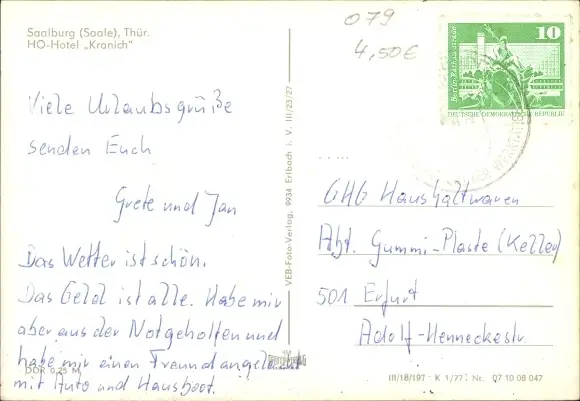 Saalburg (Saale), Thür.
HO-Hotel „Kranich"
079
4,50€
10
Berlin-Rathausstraße
DEUTSCHE DEMOKRATISCHE REPUBLIK
Viele Urlaubsgrüße
senden Euch
Grete und Jan
Das Wetter ist schön.
Das Geld ist alle. Habe mir
aber aus der Not geholfen und
habe mir einen Freund angelacht
mit Auto und Hausboot.
DDR 0,25 M
VEB-Foto-Verlag, 9934 Erlbach i. V. III/23/27
GHG Haushaltwaren
Abt. Gummi-Plaste (Keller)
501 Erfurt
Adolf-Henneckestr.
III/18/197 K 1/77 Nr. 07 10 08 047